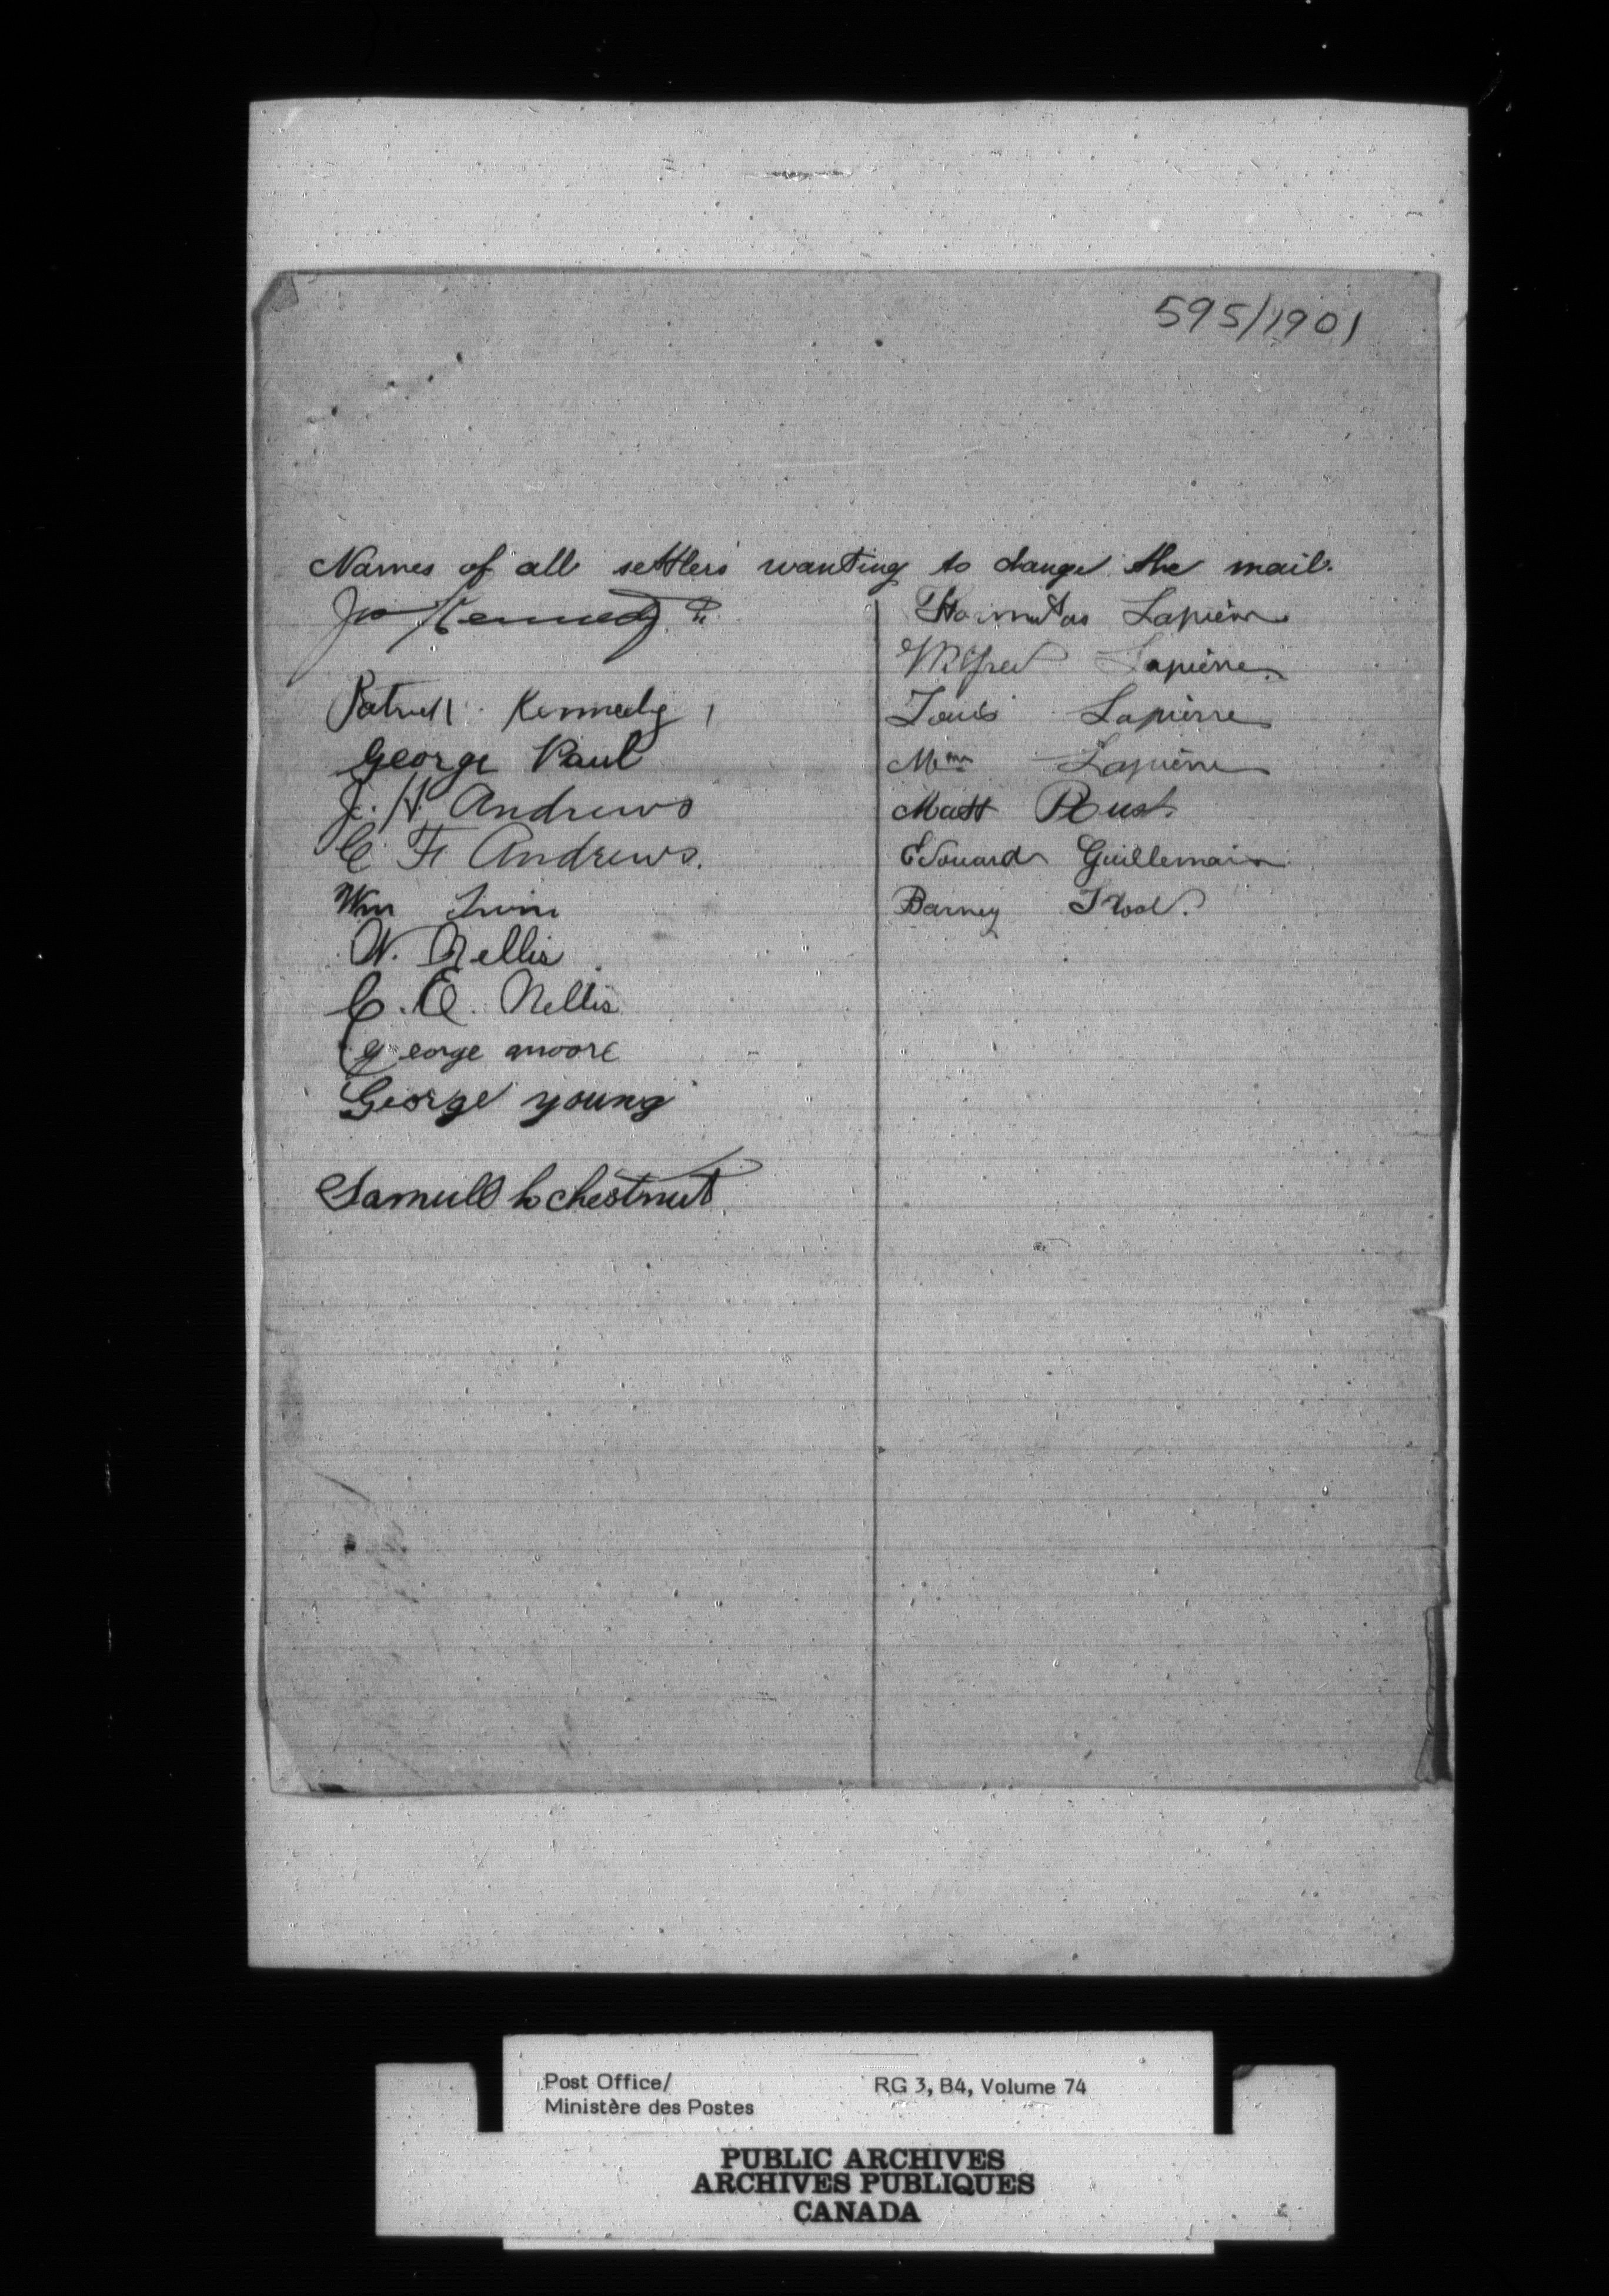 595/1901
Names of all settlers wanting to change the mail.
Jno Kennedy
Patrick Kennedy
George Paul
J. H. Andrews
C F. Andrews.
Wm Irvine
W. Nellis
C. E. Nellis
George moore
George young
Samull chestnut
Lapierre
Alfred Lapierre
Louis Lapierre
Lapierre
Matt Rust.
Edouard Guillemain
Barney
Post Office/
Ministère des Postes
RG 3, B4, Volume 74
PUBLIC ARCHIVES
ARCHIVES PUBLIQUES
CANADA